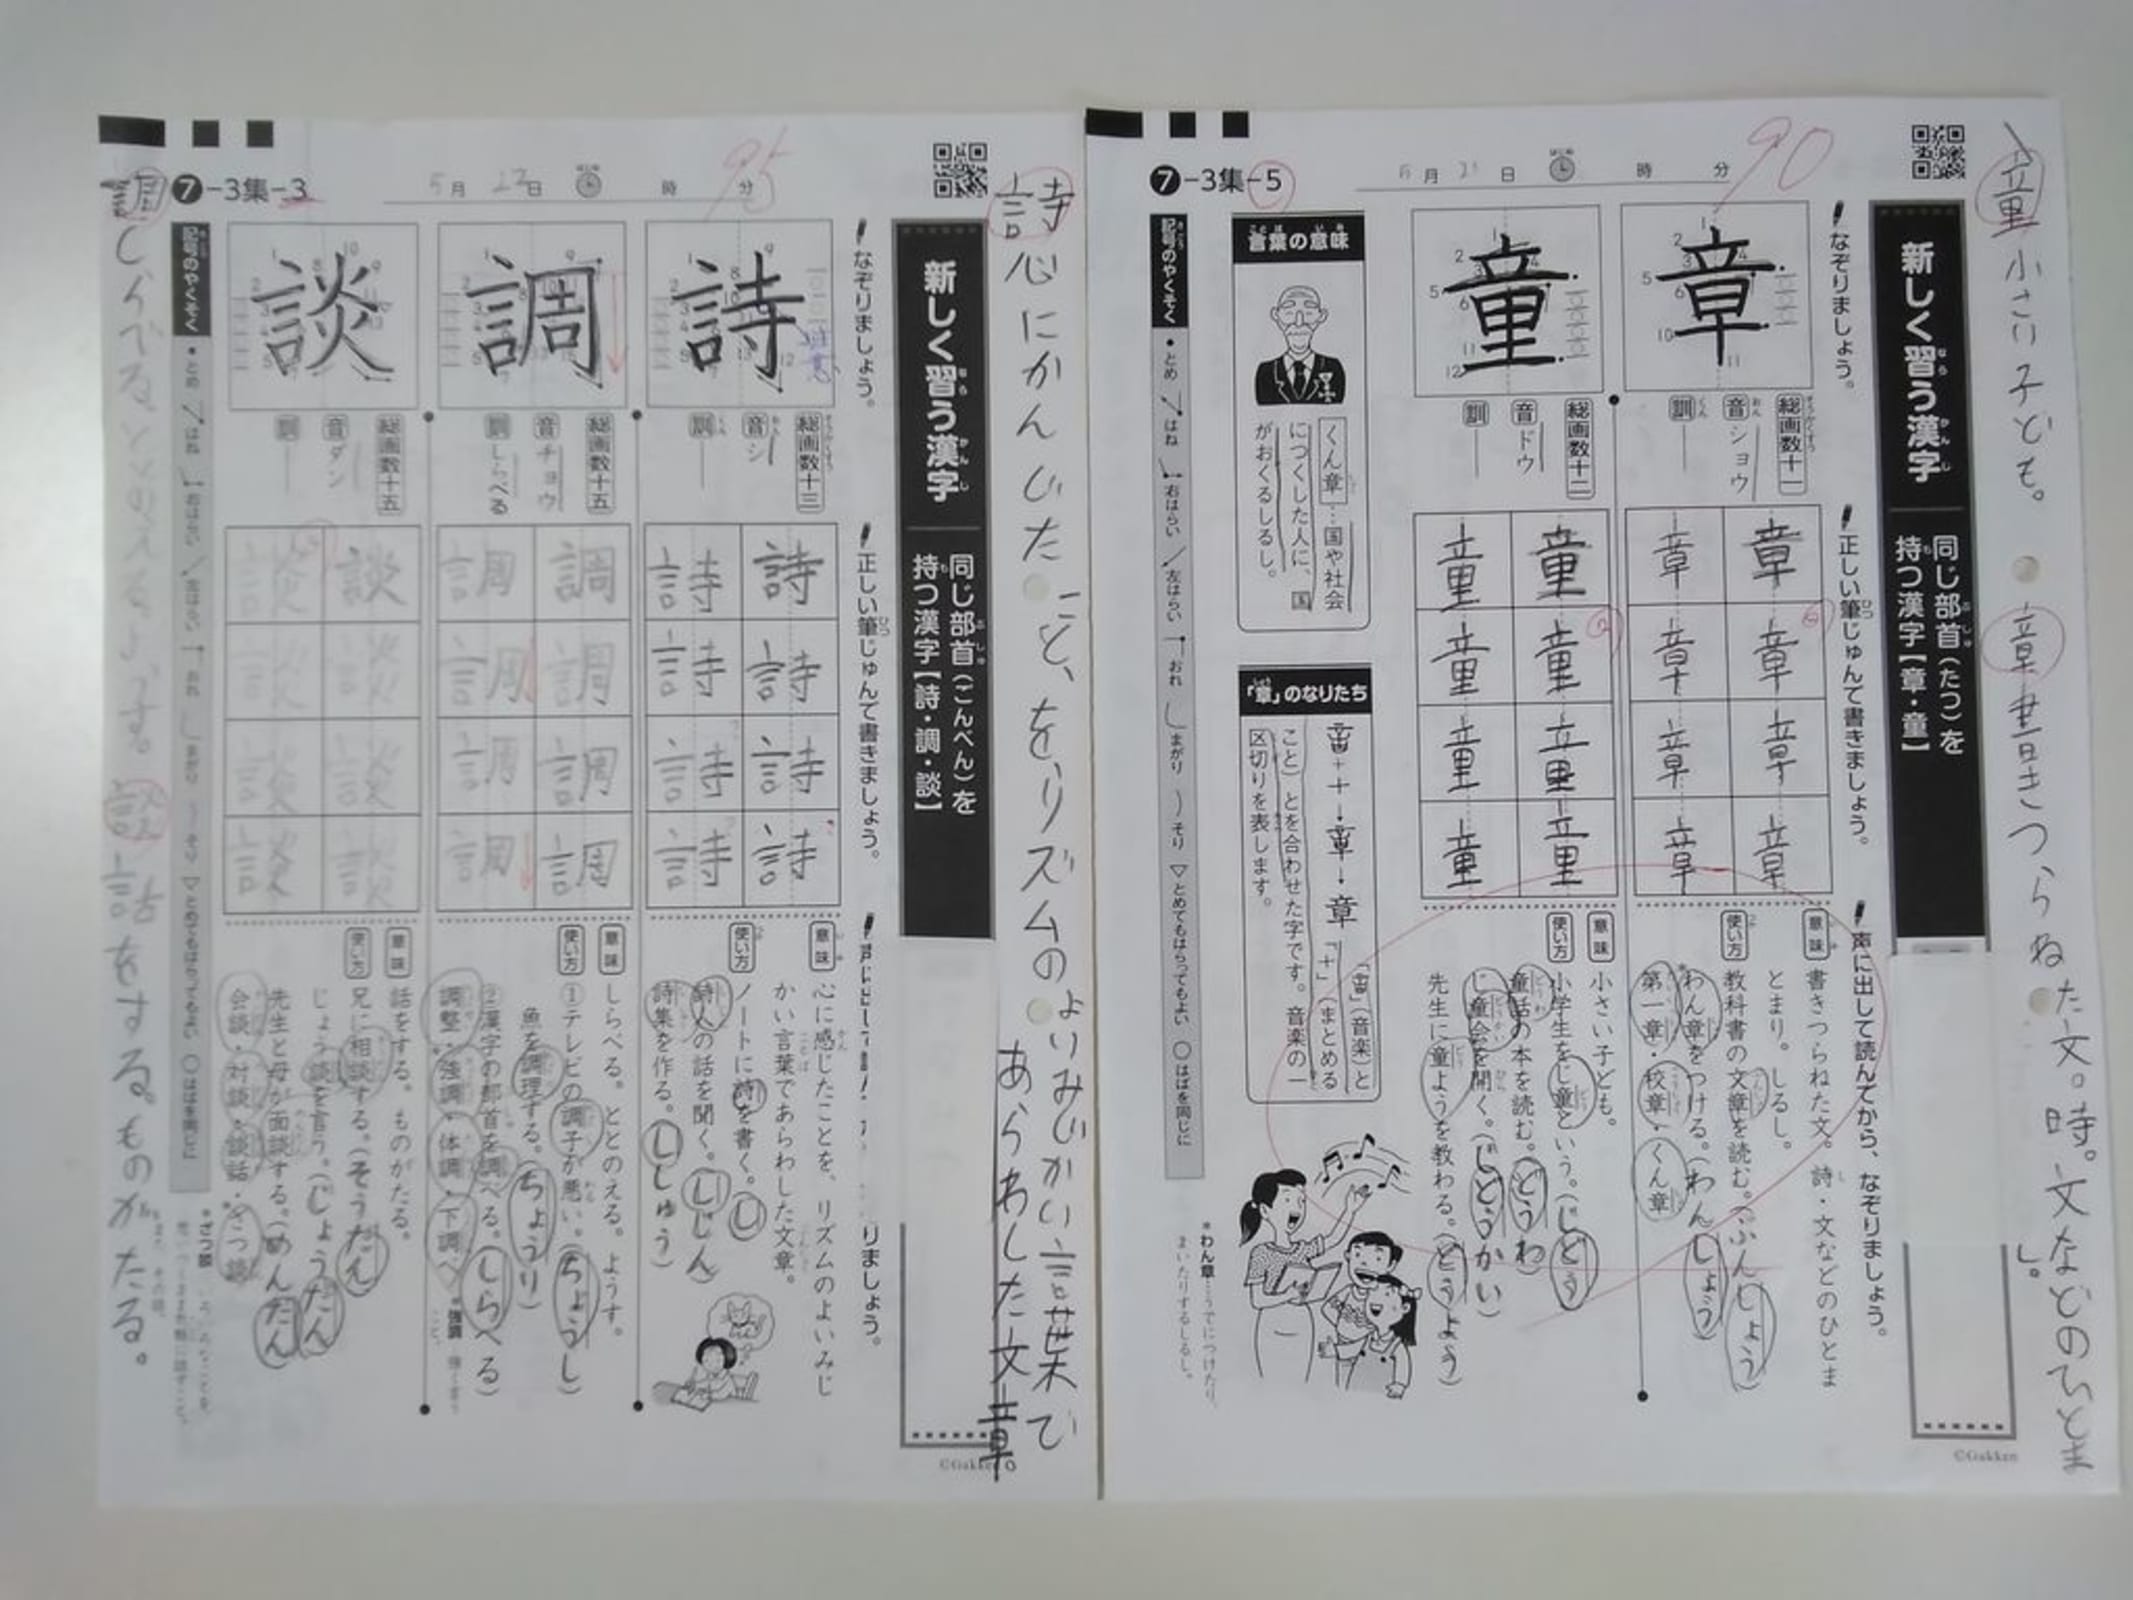 童 小さい子ども。
章 書きつらねた文。時。文などのひとま
し。
新しく習う漢字
同じ部首(たつ)を
持つ漢字【章・童】
❼-3集-5
月 日 時 分
90
なぞりましょう。
章
総画数十一
音 ショウ
訓 ―
童
総画数十二
音 ドウ
訓 ―
正しい筆じゅんで書きましょう。
章 章
章 章
章 章
章 章
童 童
童 童
童 童
童 童
声に出して読んでから、なぞりましょう。
意味
書きつらねた文。詩・文などのひとま
とまり。しるし。
使い方
教科書の文章を読む。(ぶんしょう)
*わん章をつける。(わんしょう)
第一章・校章・くん章
意味
小さい子ども。
使い方
小学生をじ童という。(じどう)
童話の本を読む。(どうわ)
じ童会を開く。(じどうかい)
先生に童ようを教わる。(どうよう)
言葉の意味
くん章…国や社会
につくした人に、国
がおくるしるし。
「章」のなりたち
(音楽)と
「十」(まとめる
こと)とを合わせた字です。音楽の一
区切りを表します。
*わん章…うでにつけたり、
まいたりするしるし。
記号のやくそく
●とめ はね 右はらい 左はらい おれ まがり そり ▽とめてもはらってもよい ○はばを同じに
©Gakken
詩 心にかんじたこと、を、リズムのよいみじかい言葉で
あらわした文章。
新しく習う漢字
同じ部首(ごんべん)を
持つ漢字【詩・調・談】
❼-3集-3
5月 日 時 分
95
なぞりましょう。
詩
総画数十三
音 シ
訓 ―
調
総画数十五
音 チョウ
訓 しらべる
談
総画数十五
音 ダン
訓 ―
正しい筆じゅんで書きましょう。
詩 詩
詩 詩
詩 詩
詩 詩
調 調
調 調
調 調
調 調
談 談
談 談
談 談
談 談
りましょう。
意味
心に感じたことを、リズムのよいみじ
かい言葉であらわした文章。
使い方
ノートに詩を書く。(し)
詩人の話を聞く。(しじん)
詩集を作る。(ししゅう)
意味
しらべる。ととのえる。ようす。
使い方
①テレビの調子が悪い。(ちょうし)
魚を調理する。(ちょうり)
②漢字の部首を調べる。(しらべる)
調整・*強調・体調・下調べ
意味
話をする。ものがたる。
使い方
兄に相談する。(そうだん)
じょう談を言う。(じょうだん)
先生と母が面談する。(めんだん)
会談・対談・談話・*ざつ談
記号のやくそく
●とめ はね 右はらい 左はらい おれ まがり そり ▽とめてもはらってもよい ○はばを同じに
©Gakken
調 しらべる、ととのえる、ようす。 談 話をする。ものがたる。